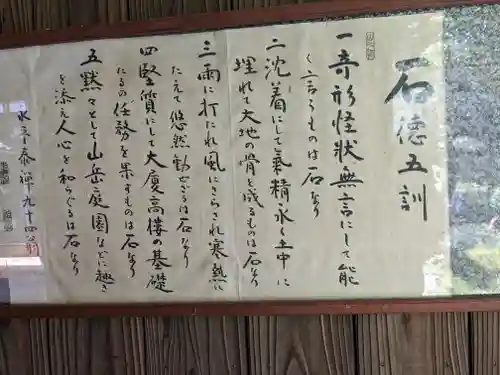 石徳五訓
一 奇形怪状無言にして能
く言うものは石なり
二 沈着にして氣精永く土中に
埋れて大地の骨と成るものは石なり
三 雨に打たれ風にさらされ寒熱に
たえて悠然動ぜざるは石なり
四 堅質にして大廈高楼の基礎
たるの任務を果すものは石なり
五 黙々として山岳庭園などに趣き
を添え人心を和らぐるは石なり
永平泰禅九十四